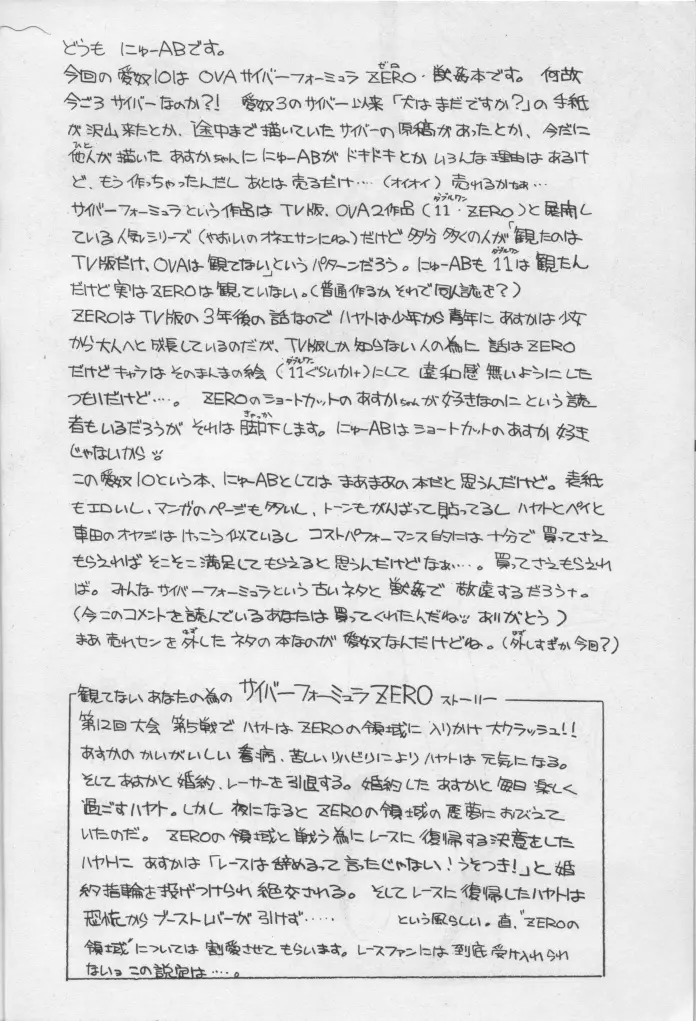 どうも にゅーABです。
今回の愛奴10は OVAサイバーフォーミュラ ZERO・獣姦本です。 何故
ゼロ
今ごろ サイバーなのか?! 愛奴3のサイバー以来「犬はまだですか?」の手紙
が沢山来たとか、途中まで描いていたサイバーの原稿があったとか、今だに
他人が描いた あすかちゃんに にゅーABが ドキドキとか いろんな理由はあるけ
ひと
ど、もう作っちゃったんだし あとは売るだけ‥‥(オイオイ) 売れるかなぁ…
サイバーフォーミュラという作品は TV版、OVA2作品(11・ZERO)と展開し
ダブルワン
ている人気シリーズ(やおいのオネエサンにね)だけど多分 多くの人が「観たのは
TV版だけ、OVAは観てない」というパターンだろう。にゅーABも 11は観たん
ダブルワン
だけど実はZEROは観ていない。(普通作るか それで同人誌を?)
ZEROはTV版の3年後の話なので ハヤトは少年から青年に あすかは少女
から大人へと成長しているのだが、TV版しか知らない人の為に 話はZERO
だけどキャラは そのまんまの絵(11ぐらいかナ)にして 違和感無いようにした
ダブルワン
つもりだけど‥‥。 ZEROのショートカットのあすかちゃんが好きなのに という読
者もいるだろうが それは却下します。にゅーABはショートカットのあすか 好き
きゃっか
じゃないから
この愛奴10という本、にゅーABとしては まあまあの本だと思うんだけど。表紙
もエロいし、マンガのページも多いし、トーンもがんばって貼ってるし ハヤトとペイと
車田のオヤジは けっこう似ているし コストパフォーマンス的には十分で 買ってさえ
もらえれば そこそこ満足してもらえると思うんだけどなぁ‥‥。買ってさえもらえれ
ば。 みんな サイバーフォーミュラという古いネタと 獣姦で 敬遠するだろうナ。
(今このコメントを読んでいるあなたは 買ってくれたんだね ありがとう)
まあ 売れセンを外した ネタの本なのが 愛奴なんだけどね。(外しすぎか今回?)
はず
はず
観てないあなたの為の サイバーフォーミュラ ZERO ストーリー
第12回大会 第5戦で ハヤトは ZEROの領域に入りかけ 大クラッシュ!!
あすかのかいがいしい 看病、苦しいリハビリにより ハヤトは 元気になる。
そして あすかと婚約、レーサーを引退する。 婚約した あすかと毎日 楽しく
過ごすハヤト。しかし 夜になると ZEROの領域の悪夢におびえて
いたのだ。 ZEROの領域と戦う為にレースに復帰する決意をした
ハヤトに あすかは「レースは辞めるって言ったじゃない!うそつき!」と婚
約指輪を投げつけられ絶交される。 そしてレースに復帰したハヤトは
恐怖から ブーストレバーが引けず‥‥‥ という風らしい。直、"ZEROの
領域"については 割愛させてもらいます。レースファンには到底受け入れられ
ない。この設定は‥‥。